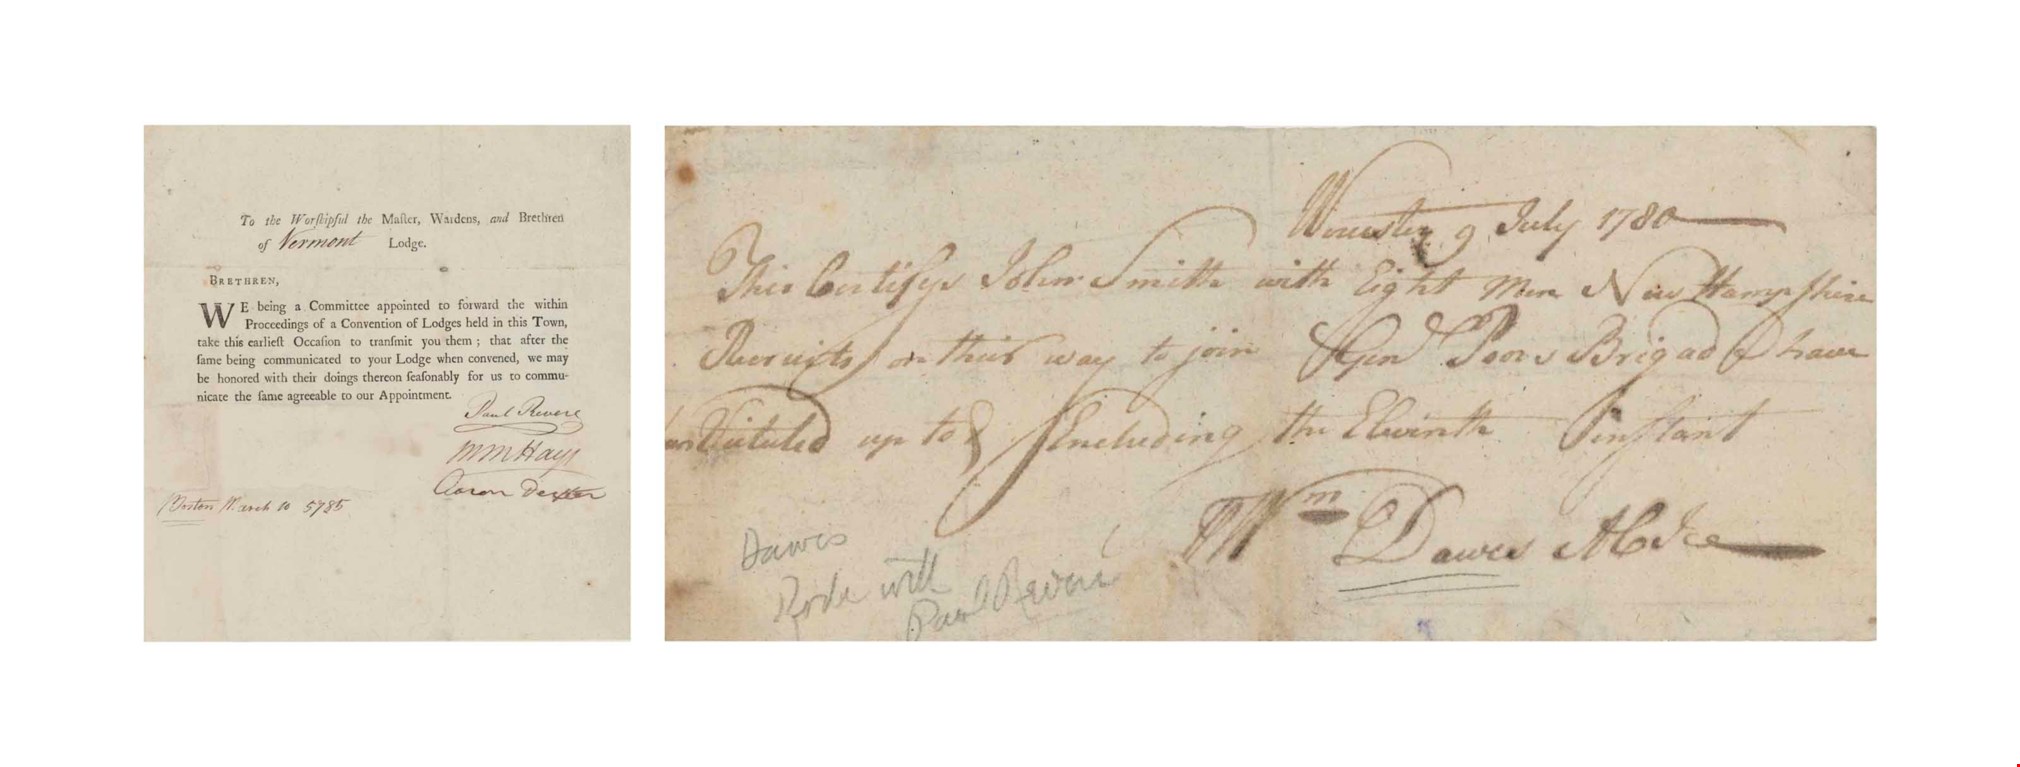 To the Worſhipful the Maſter, Wardens, and Brethren
of Vermont Lodge.
BRETHREN,
WE being a Committee appointed to forward the within
Proceedings of a Convention of Lodges held in this Town,
take this earlieſt Occaſion to tranſmit you them ; that after the
ſame being communicated to your Lodge when convened, we may
be honored with their doings thereon ſeaſonably for us to commu-
nicate the ſame agreeable to our Appointment.
Paul Revere
MM Hays
Aaron Dexter
Boston March 10 5785
Worcester 9 July 1780
This Certifys John Smith with Eight Men New Hampshire
Recruits on their way to join Genl Poors Brigad have
Victuled up to & Encluding the Eleventh instant
Wm Dawes
Dawes
Rode with
Paul Revere